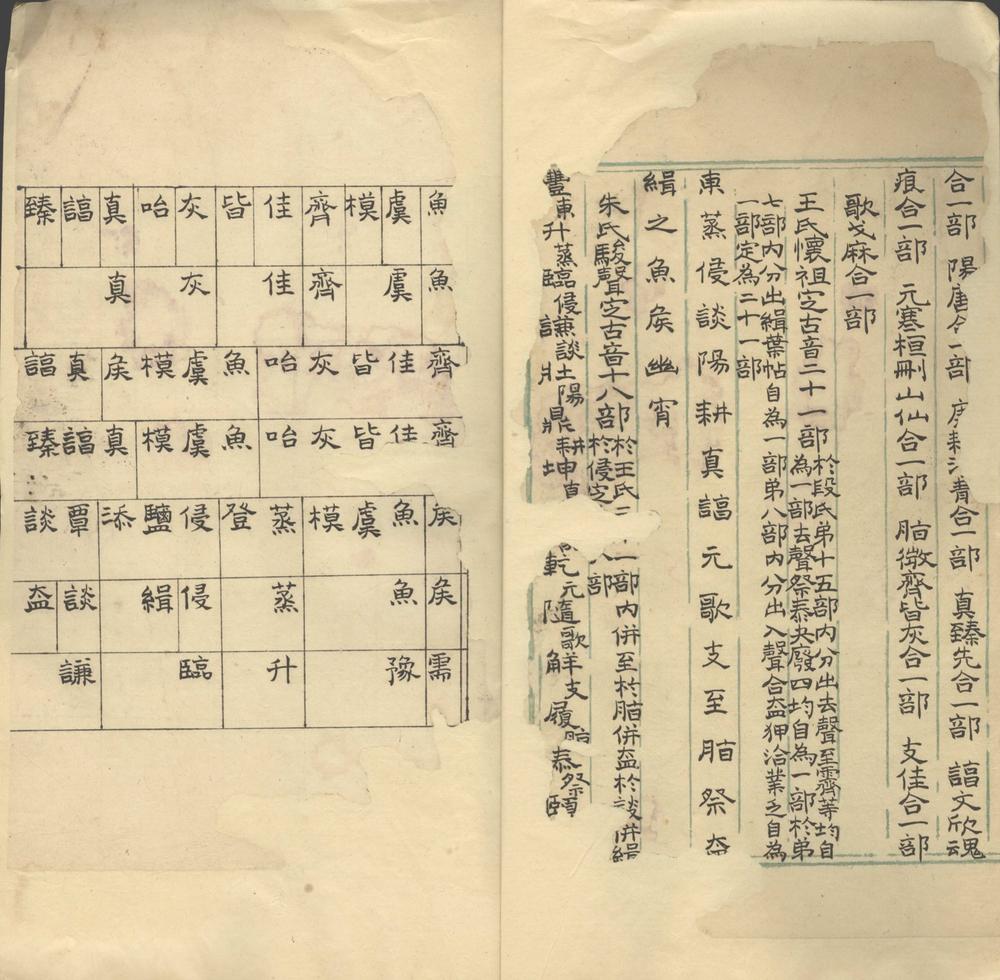 合一部 陽唐合一部 庚耕清青合一部 真臻先合一部 諄文欣魂
痕合一部 元寒桓刪山仙合一部 脂微齊皆灰合一部 支佳合一部
歌戈麻合一部
王氏懷祖定古音二十一部
於段氏弟十五部内分出去聲至霽等均自
為一部去聲祭泰夬廢四均自為一部於弟
七部内分出緝葉帖自為一部弟八部内分出入聲合盍狎洽業乏自為
一部定為二十一部
東蒸侵談陽耕真諄元歌支至脂祭盍
緝之魚矦幽宵
朱氏駿聲定古音十八部
於王氏一部内併至於脂併盍於談併緝
於侵定部
豐東升蒸臨侵謙談壯陽鼎耕坤真乾元隨歌解支履脂泰祭頤
魚虞模齊佳皆灰咍真諄臻
魚虞齊佳灰真
齊佳皆灰咍魚虞模矦真諄
齊佳皆灰咍魚虞模真諄臻
矦魚虞模蒸登侵鹽添覃談
矦魚蒸侵緝談盍
需豫升臨謙